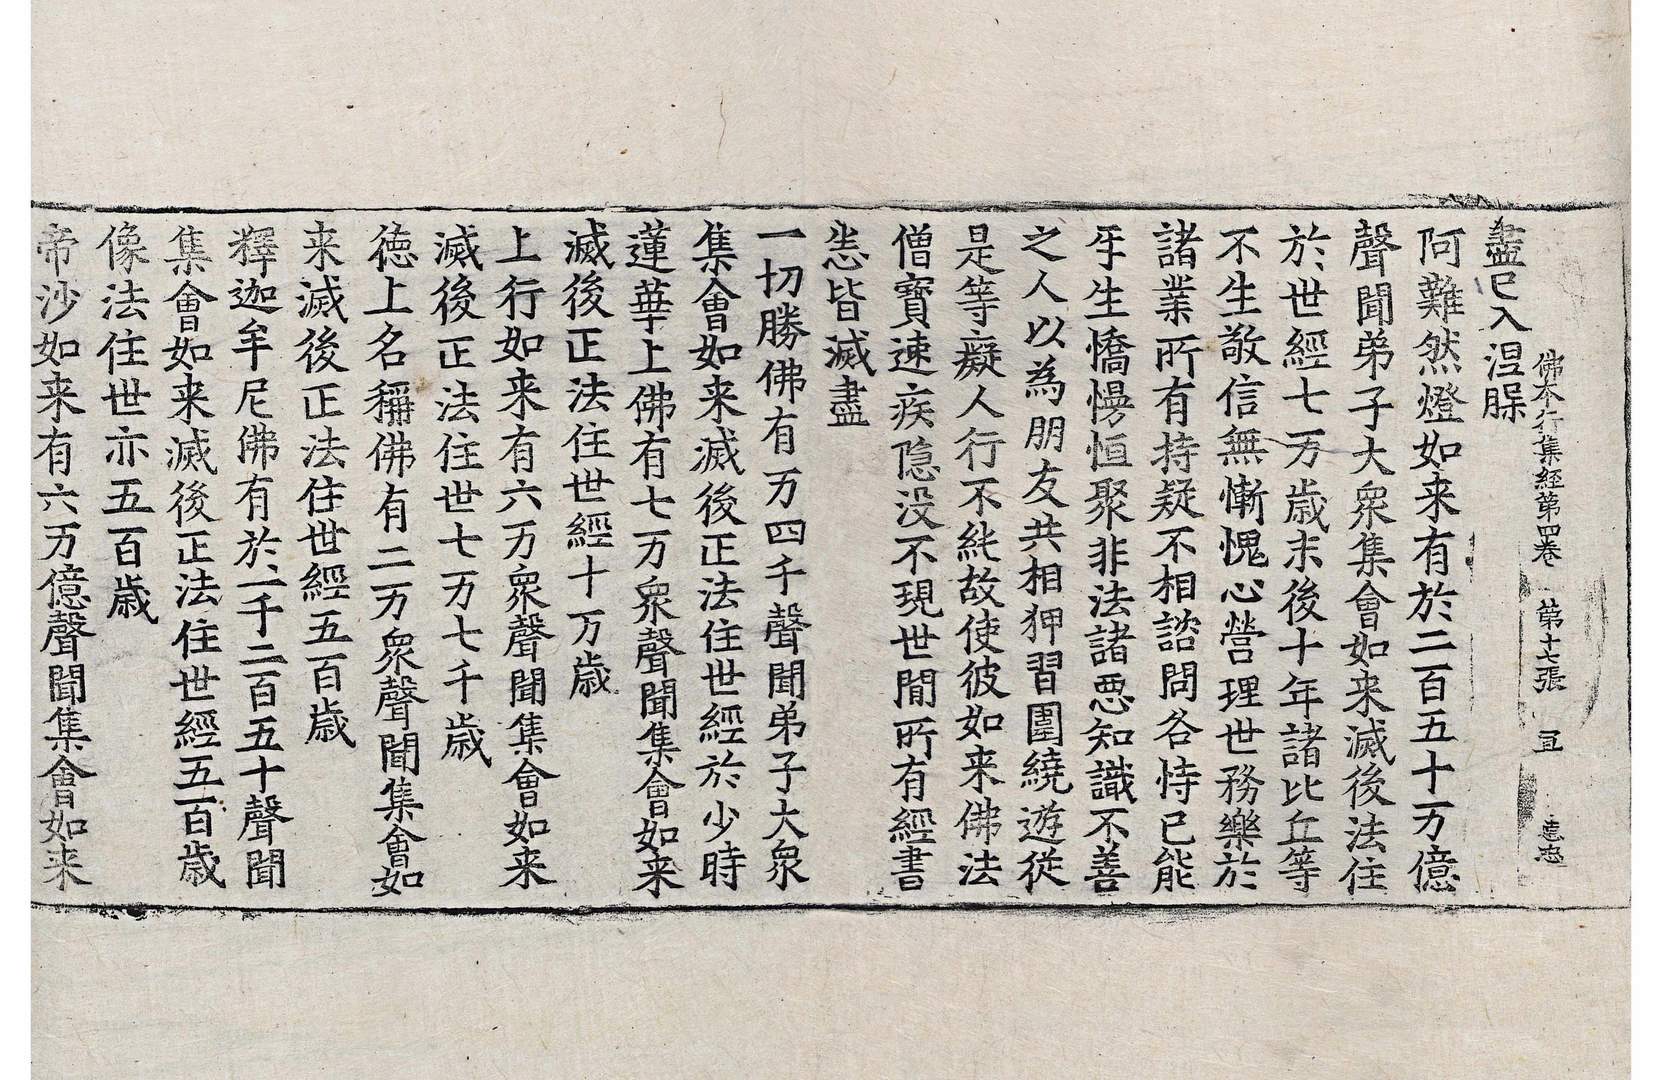 盡已入涅槃
佛本行集経第四卷 第十七張
阿難然燈如来有於二百五十万億
聲聞弟子大衆集會如来滅後法住
於世經七万歳末後十年諸比丘等
不生敬信無慚愧心營理世務樂於
諸業所有持疑不相諮問各恃己能
手生憍慢恒聚非法諸惡知識不善
之人以為朋友共相狎習圍繞遊從
是等癡人行不純故使彼如来佛法
僧寶速疾隐没不現世間所有經書
悉皆滅盡
一切勝佛有万四千聲聞弟子大衆
集會如来滅後正法住世經於少時
蓮華上佛有七万衆聲聞集會如来
滅後正法住世經十万歳
上行如来有六万衆聲聞集會如来
滅後正法住世七万七千歳
徳上名稱佛有二万衆聲聞集會如
来滅後正法住世經五百歳
釋迦牟尼佛有於一千二百五十聲聞
集會如来滅後正法住世經五百歳
像法住世亦五百歳
帝沙如来有六万億聲聞集會如来